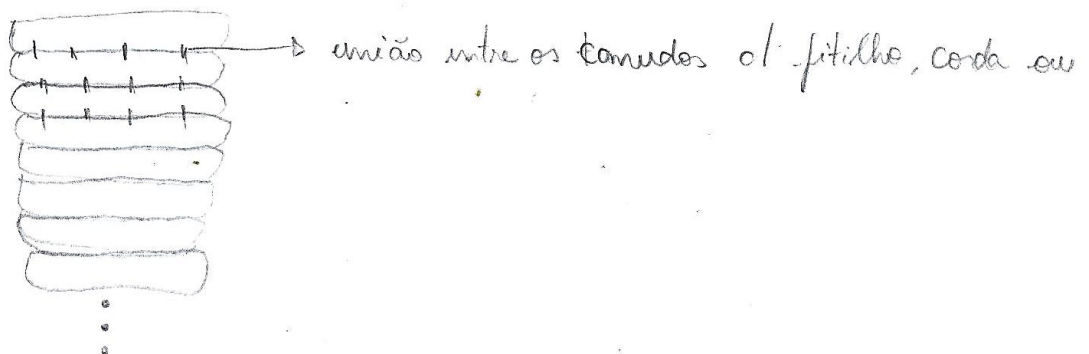 união entre os canudos c/ fitilho, corda ou